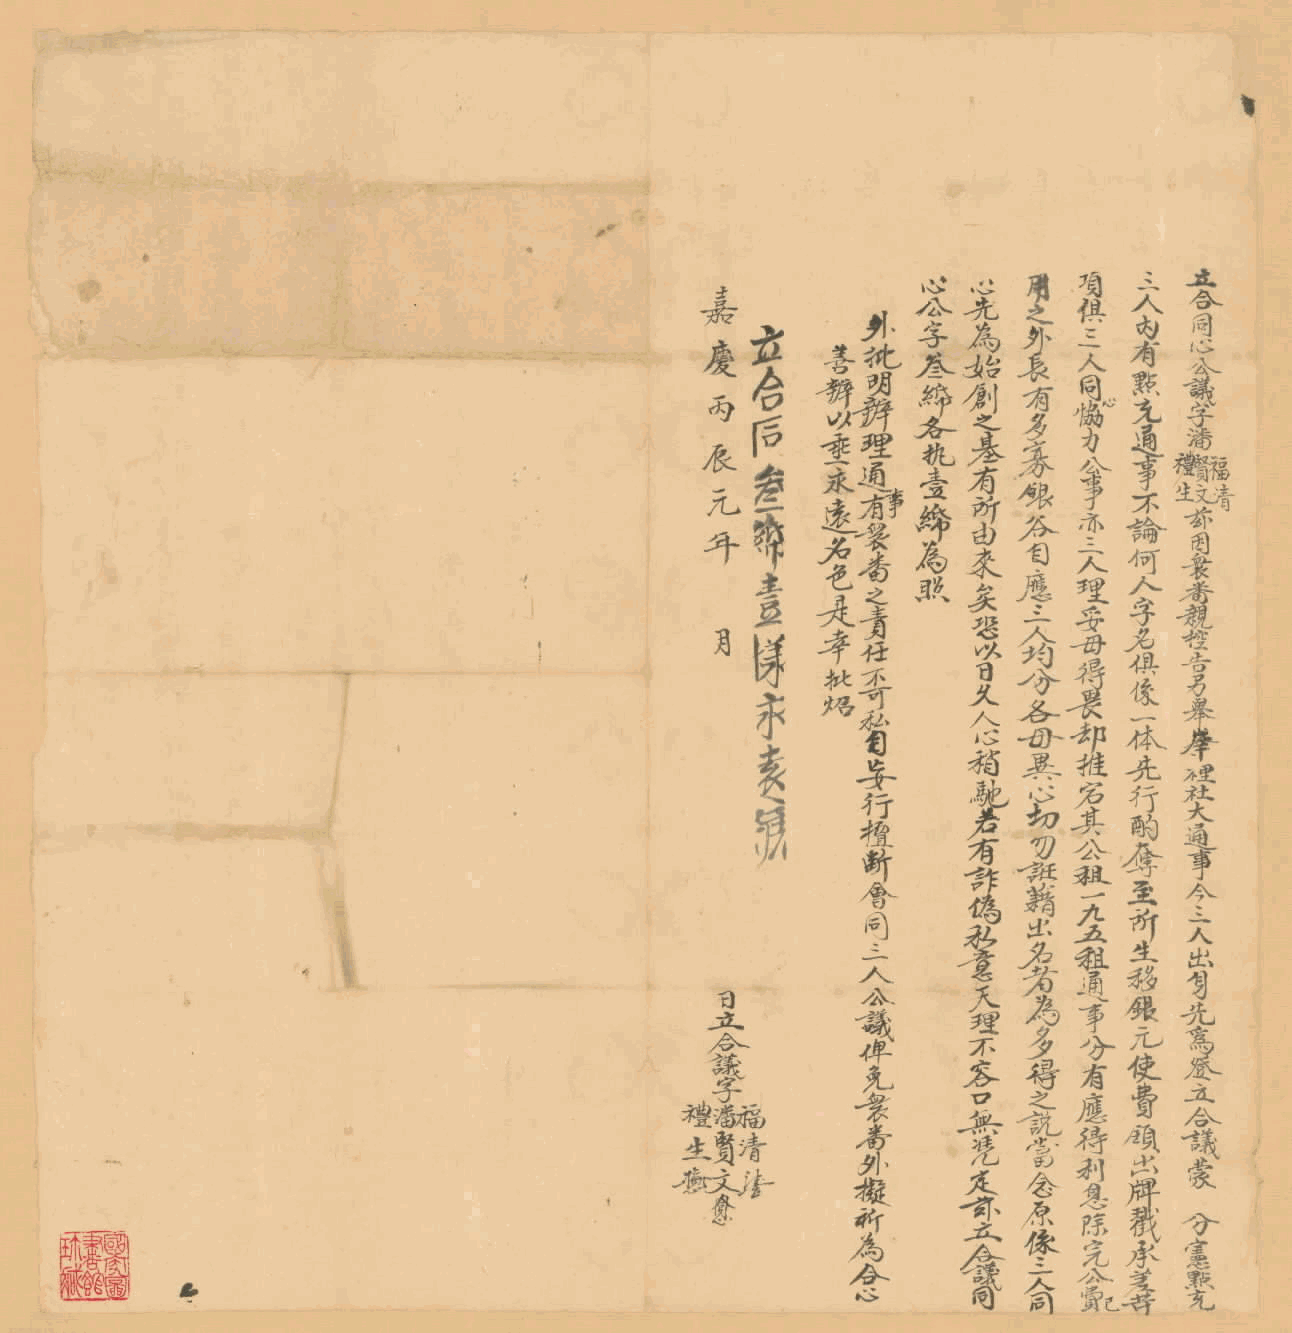 立合同心公議字潘福清賢文禮生茲因衆番親控告另舉岸裡社大通事今三人出身先爲登立合議蒙 分憲點充
三人內有點充通事不論何人字名俱係一体先行酌奪至所生移銀元使費領出牌戳承差苦
項俱三人同心恊力公事亦三人理妥毋得畏却推宕其公租一九五租通事分有應得利息除完公費己
用之外長有多寡銀谷自應三人均分各毋異心切勿誑藉出名者為多得之說當念原係三人同
心先為始創之基有所由來矣恐以日久人心稍馳若有詐偽私意天理不容口無憑定詠立合議同
心公字叁紙各执壹紙為照
外批明辦理通事有衆番之責任不可私自妄行擅斷會同三人公議俾免衆番外擬祈為合心
善辦以垂永遠名色是幸批炤
立合同叁紙壹樣永遠為
嘉慶丙辰元年 月 日立合議字潘福清賢文禮生
國家圖書館珍藏